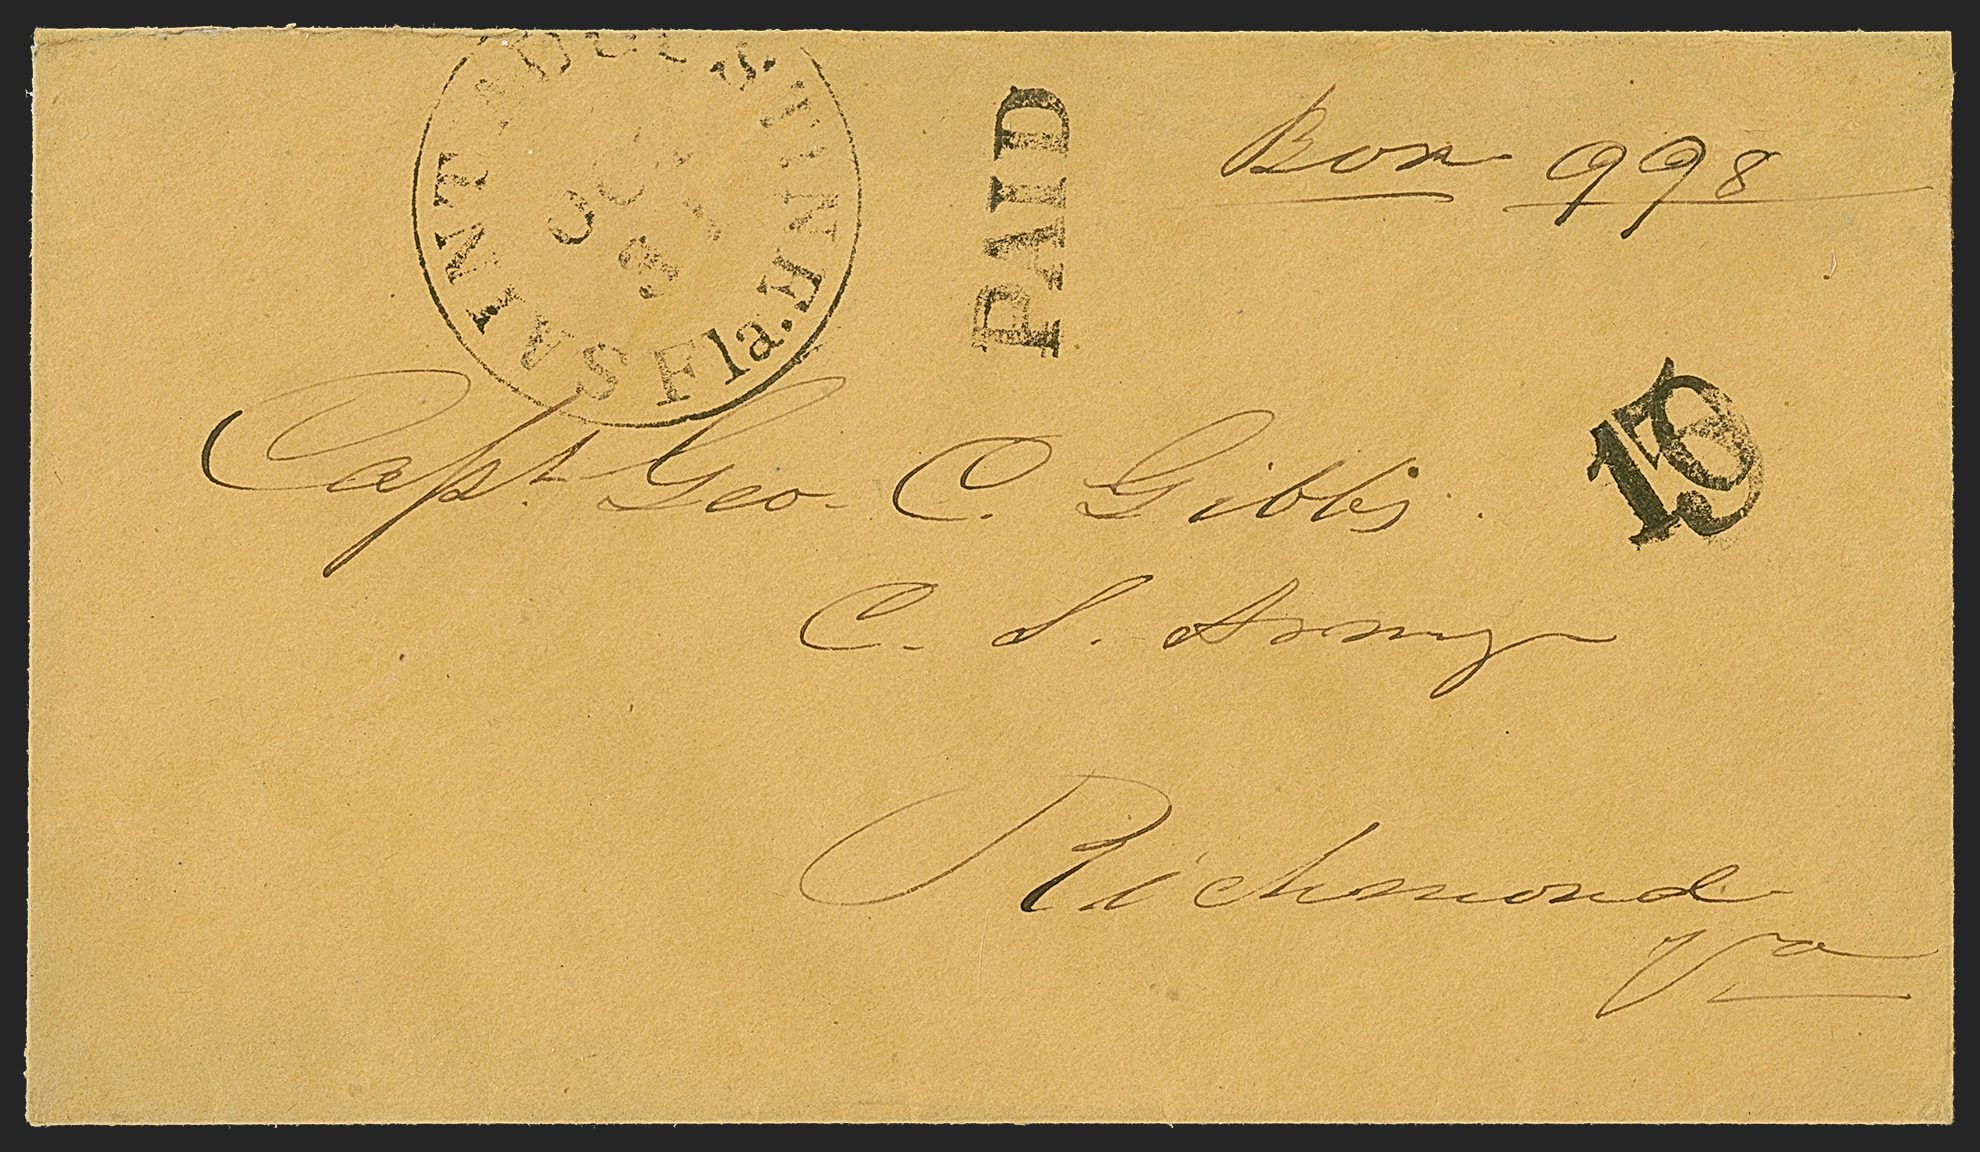 SAINT AUGUSTINE Fla.
OCT
3
PAID
Box 998
10
Capt Geo. C. Gibbs.
C. S. Army
Richmond
Va